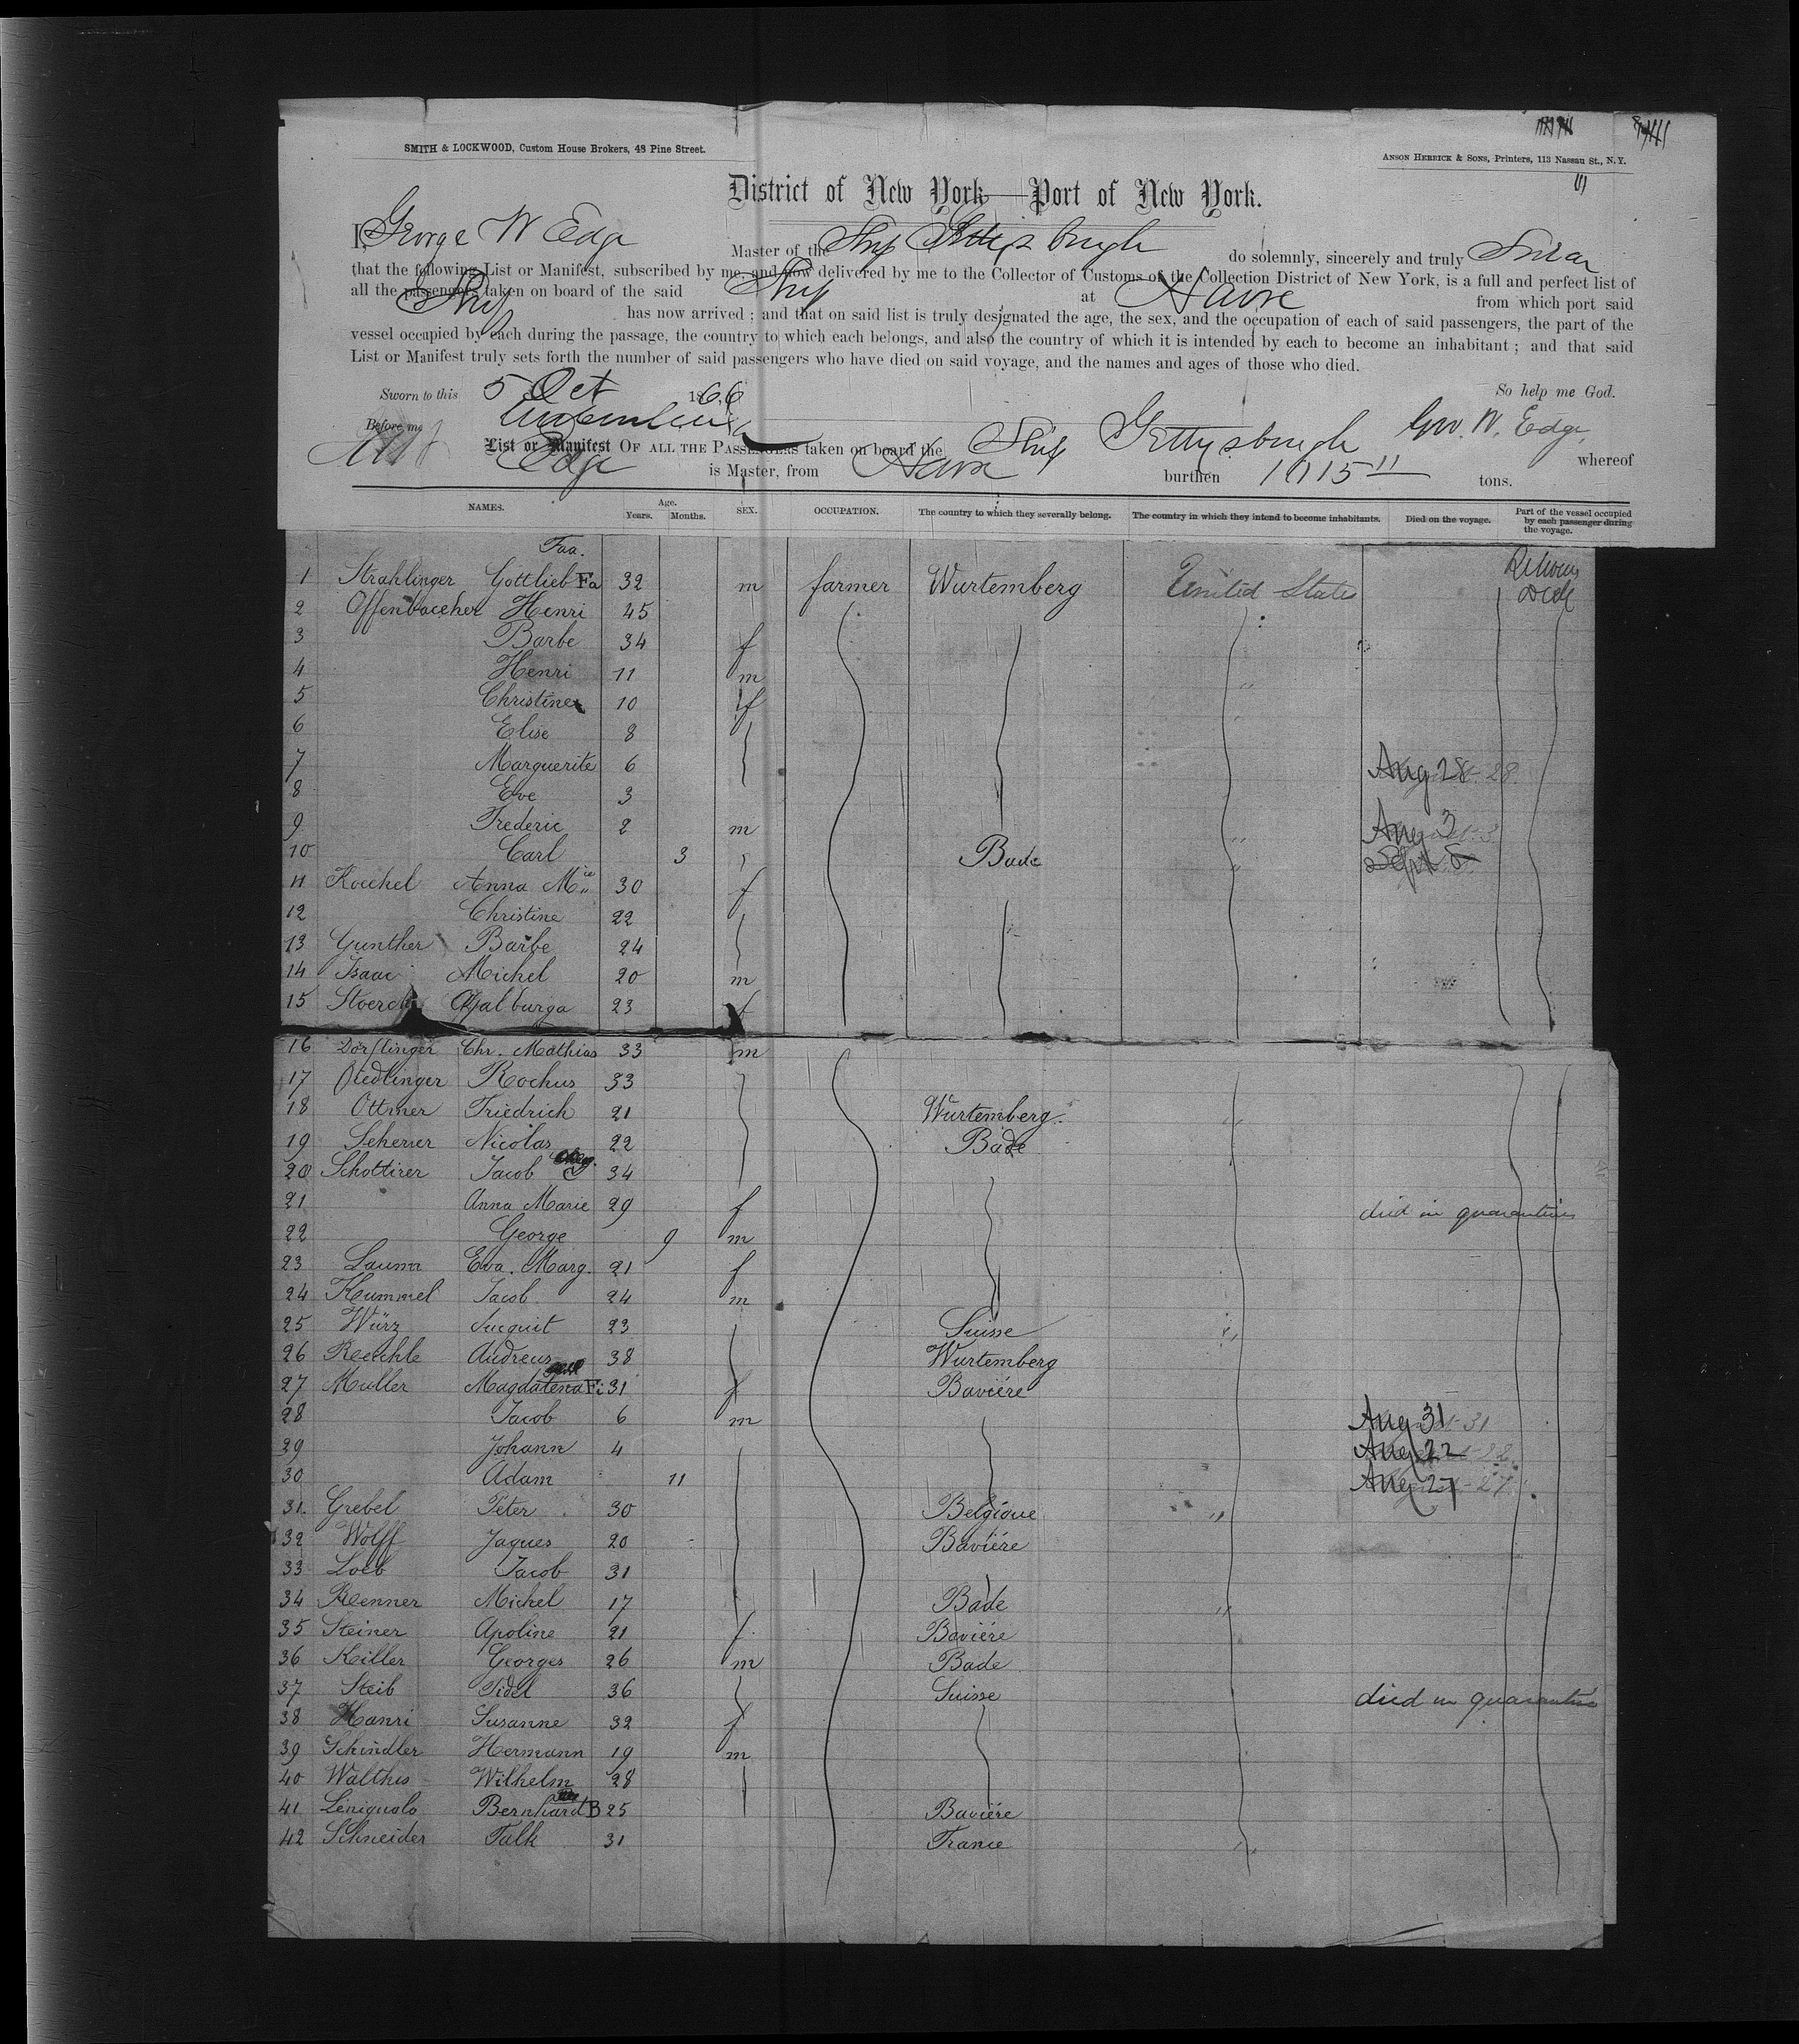 SMITH & LOCKWOOD, Custom House Brokers, 48 Pine Street.
ANSON HERRICK & SONS, Printers, 113 Nassau St., N.Y.
District of New York—Port of New York.
I, George W Edge Master of the Ship Gettysburgh do solemnly, sincerely and truly Swear
that the following List or Manifest, subscribed by me, and now delivered by me to the Collector of Customs of the Collection District of New York, is a full and perfect list of
all the passengers taken on board of the said Ship at Havre from which port said
Ship has now arrived; and that on said list is truly designated the age, the sex, and the occupation of each of said passengers, the part of the
vessel occupied by each during the passage, the country to which each belongs, and also the country of which it is intended by each to become an inhabitant; and that said
List or Manifest truly sets forth the number of said passengers who have died on said voyage, and the names and ages of those who died.
Sworn to this 5 Oct 1866 So help me God.
Before me Geo. W. Edge
List or Manifest OF ALL THE PASSENGERS taken on board the Ship Gettysburgh whereof
Edge is Master, from Havre burthen tons.
NAMES. Age. Years. Months. SEX. OCCUPATION. The country to which they severally belong. The country in which they intend to become inhabitants. Died on the voyage. Part of the vessel occupied by each passenger during the voyage.
1 Strahlinger Gottlieb Fa 32 m farmer Wurtemberg United States
2 Offenbaccher Henri 45
3 Barbe 34 f
4 Henri 11 m
5 Christine 10 f
6 Elise 8
7 Marguerite 6 Aug 28
8 Eve 3
9 Frederic 2 m Aug 3
10 Carl 3 Bade Sept 5
11 Koeckel Anna Mie 30 f
12 Christine 22
13 Gunther Barbe 24
14 Isaac Michel 20 m
15 Stoerck Walburga 23 f
16 Dörflinger Chr. Mathias 33 m
17 Riedlinger Rochus 33
18 Ottmer Friedrich 21 Wurtemberg
19 Scherrer Nicolas 22 Bade
20 Schottirer Jacob 34
21 Anna Marie 29 f died in quarantine
22 George 9 m
23 Laumn Eva. Marg. 21 f
24 Kummel Jacob 24 m
25 Würz 23 Suisse
26 Reechle Andreus 38 Wurtemberg
27 Muller Magdalena Fi 31 f Baviére
28 Jacob 6 m Aug 31
29 Johann 4 Aug 22
30 Adam 11 Aug 27
31 Grebel Peter 30 Belgique
32 Wolff Jaques 20 Baviére
33 Loeb Jacob 31
34 Renner Michel 17 Bade
35 Steiner Apoline 21 f Baviére
36 Killer Georges 26 m Bade
37 Steib Fidel 36 Suisse died in quarantine
38 Hanri Susanne 32 f
39 Schindler Hermann 19 m
40 Walthis Wilhelm 28
41 Bernhard B 25 Baviére
42 Schneider Falk 31 France